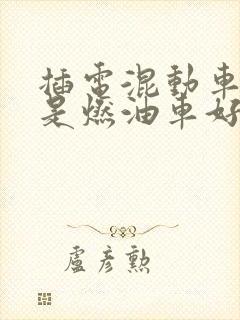 插電混動車
是燃油車好
盧彥勲